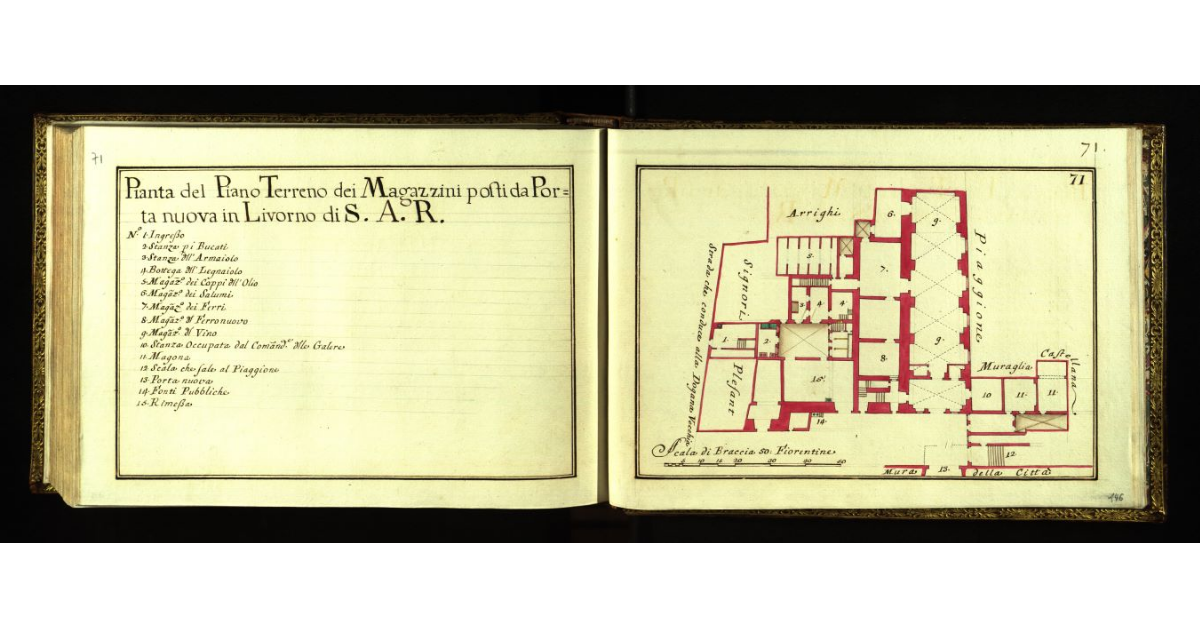 71
Pianta del Piano Terreno dei Magazzini posti da Por=
ta nuova in Livorno di S. A. R.
N.º 1. Ingresso
2. Stanza p i Bucati
3. Stanza dell' Armaiolo
4. Bottega dell' Legnaiolo
5. Magaz.º dei Coppi dell' Olio
6. Magaz.º dei Salumi
7. Magaz.º dei Ferri
8. Magaz.º di Ferronuovo
9. Magaz.º di Vino
10. Stanza Occupata dal Comand.e delle Galere
11. Magona
12. Scala che sale al Piaggione
13. Porta nuova
14. Fonti Pubbliche
15. Rimessa
71.
71
Arrighi
Signori
Plefant
Strada che conduce alla Dogana Vecchia
Piaggione
Muraglia Castellana
6.
9.
5.
7.
3.
4.
4.
1.
2.
8.
9.
15.
10
11.
11.
14.
12
13.
Scala di Braccia 50. Fiorentine
10 20 30 40 50
Mura della Città
146